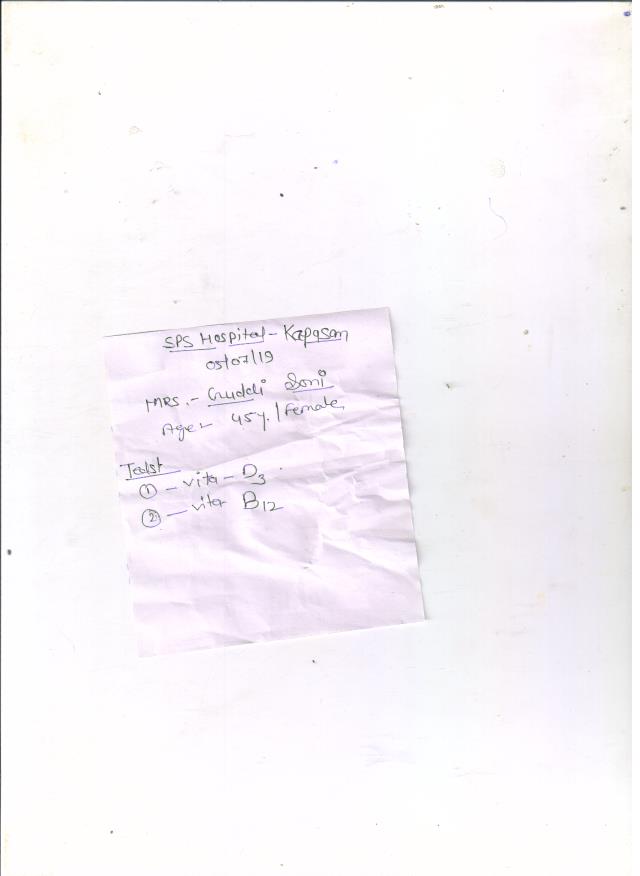 SPS Hospital - Kapasan
05/07/19
MRS. - Guddi Soni
Age:- 45y. / Female
① - vita - D3
② - vita B12